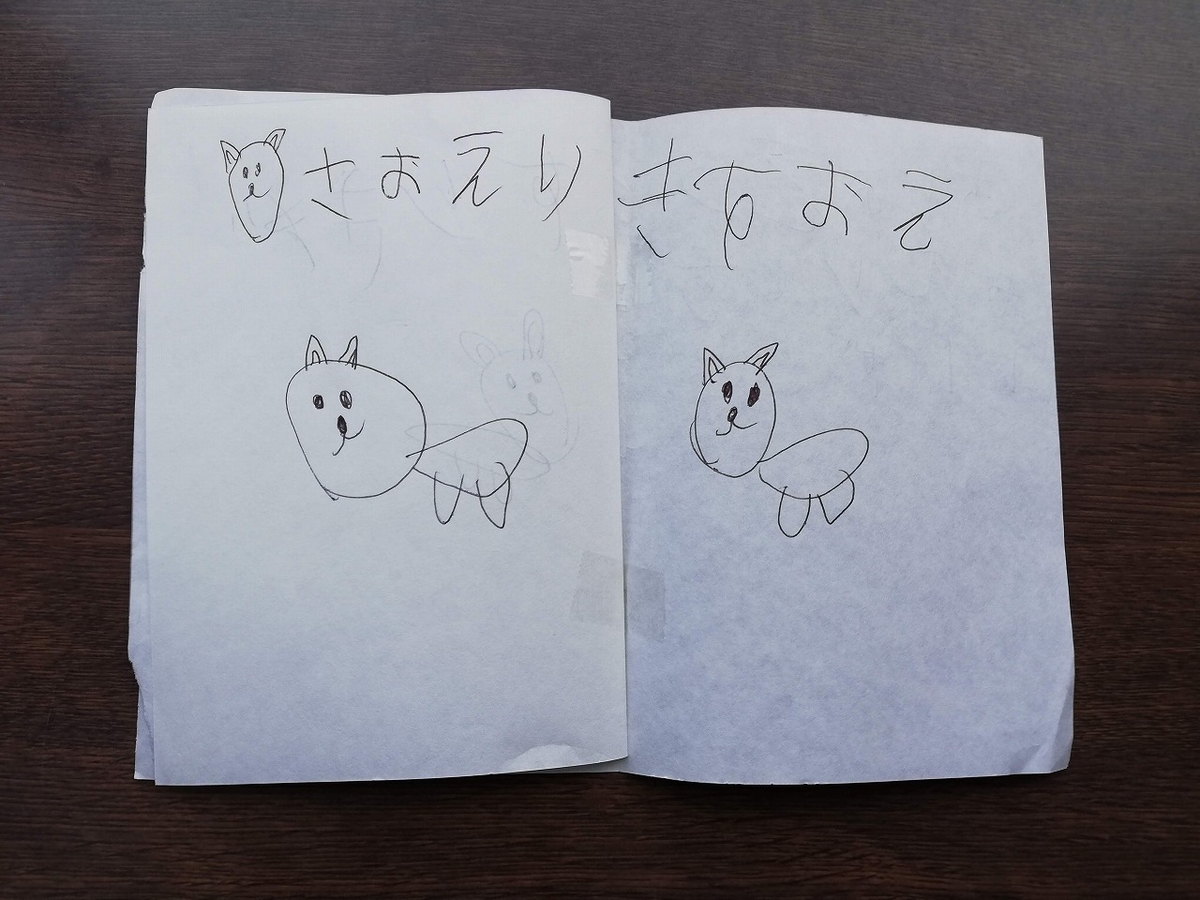 さおえり
きすおえ